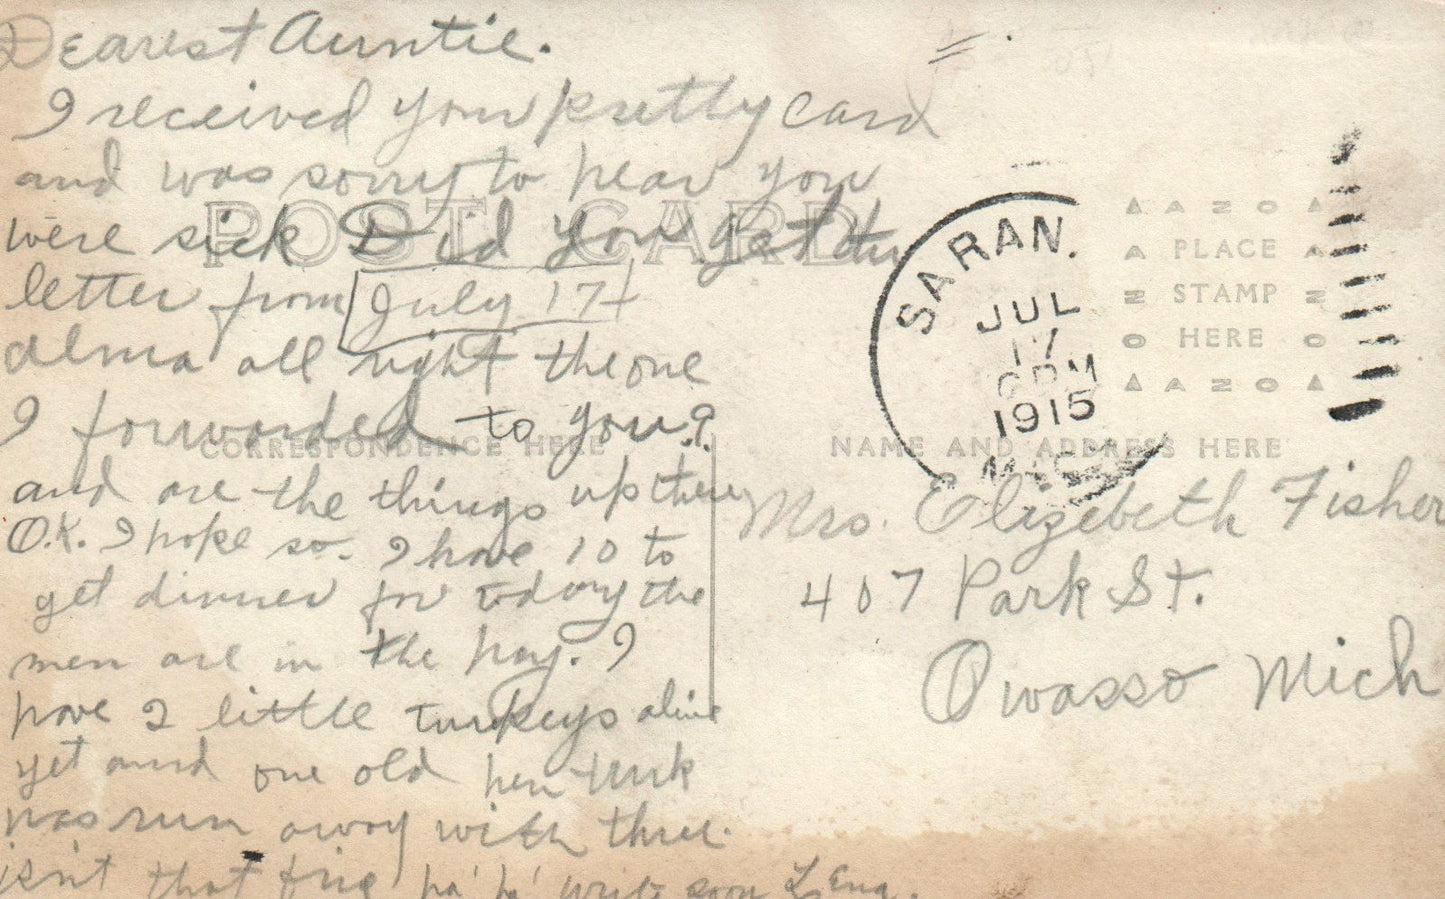 Dearest Auntie.
I received your pretty card
and was sorry to hear you
POST CARD
were sick Did you get the
letter from July 17+
alma all right the one
I forwarded to you?
CORRESPONDENCE HERE
and are the things up there
O.K. I hope so. I have 10 to
get dinner for today the
men are in the hay. I
have 2 little turkeys alive
yet and one old hen turk
has run away with three.
isn't that fine ha' ha' write soon Lena.
SARAN.
JUL
17
6PM
1915
MICH
AZO
PLACE
STAMP
HERE
AZO
NAME AND ADDRESS HERE
Mrs. Elizebeth Fisher
407 Park St.
Owasso Mich